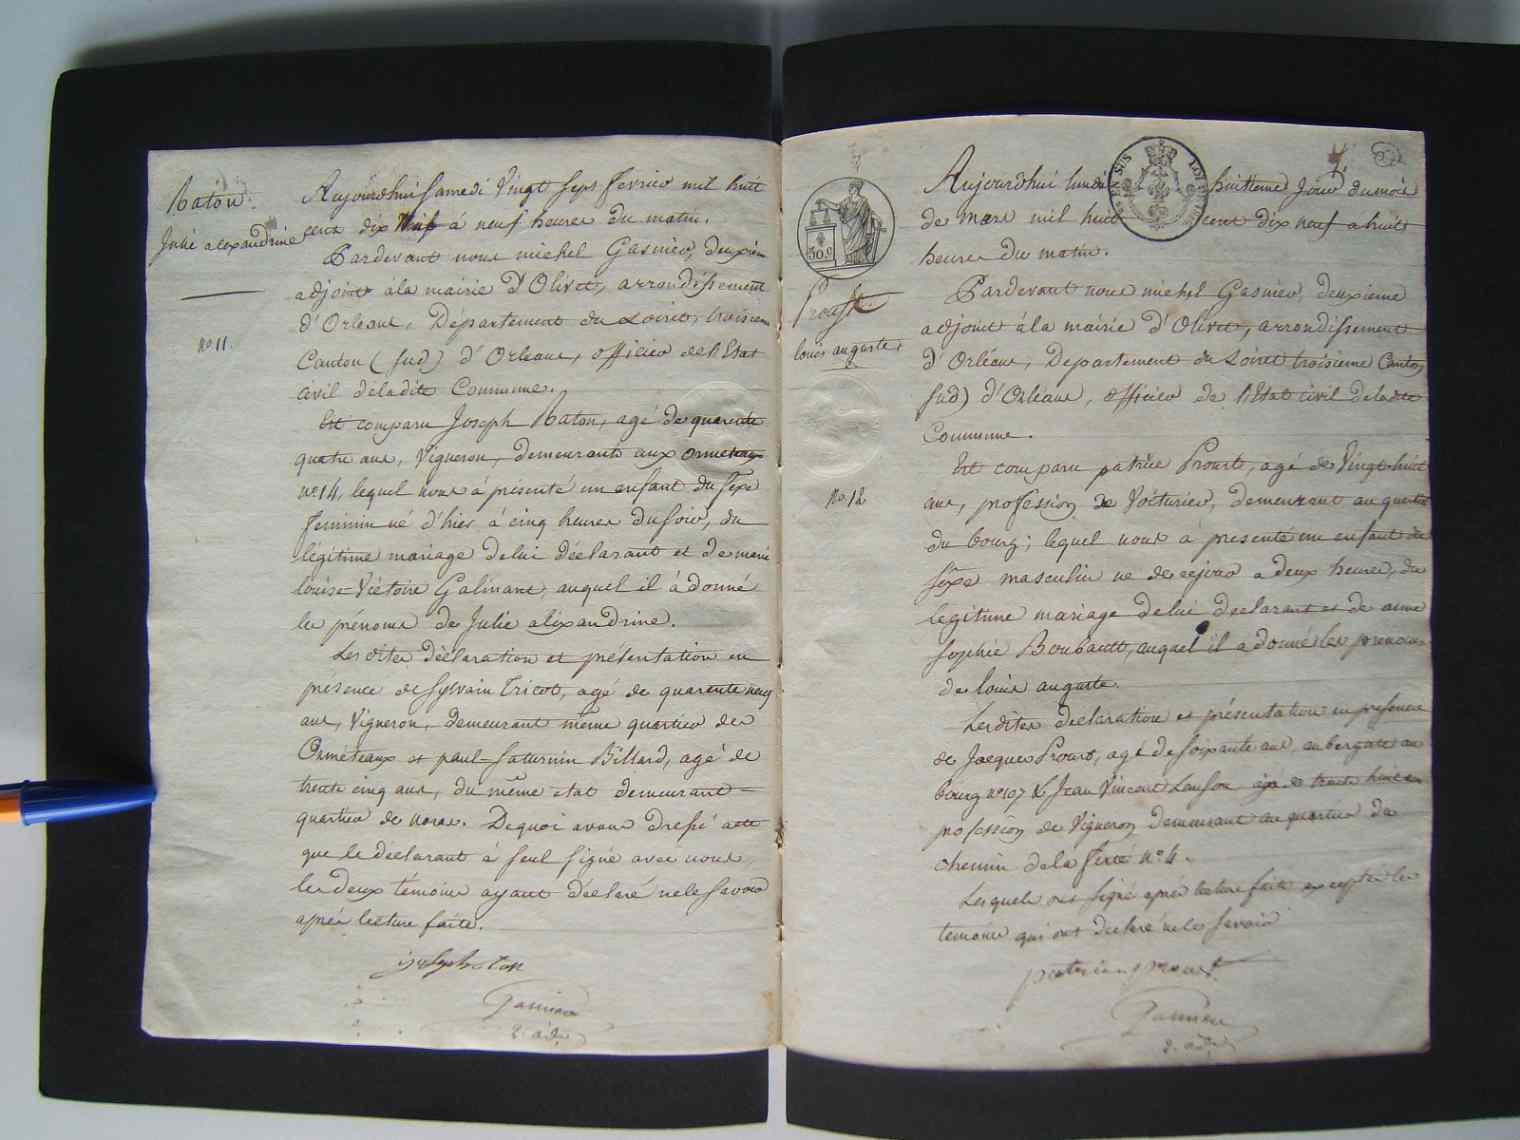 Naton.
Julie alexandrine
no 11.
Aujourdhui Samedi Vingt Sept Fevrier mil huit
cent dix Neuf à neuf heures du matin.
Pardevant nous michel Gasnier, deuxiem
adjoint à la mairie d'Olivet, arrondissement
d'Orleans, Département du Loiret, troisiem
Canton (Sud) d'Orleans, officier de l'Etat
civil deladite Commune.
Est comparu Joseph Naton, agé de quarente
quatre ans, Vigneron, demeurant aux Ormeteaux
no 14, lequel nous à présenté un enfant du Sexe
feminin né d'hier à cinq heures du Soir, du
légitime mariage de lui déclarant et de marie
louise Victoire Galinant, auquel il à donné
les prénoms de Julie alixandrine.
Lesdites Déclaration et présentation en
présence de Sylvain Tricot, agé de quarente neuf
ans, Vigneron, demeurant même quartier des
Ormeteaux et paul Saturnin Billard, agé de
trente cinq ans, du même etat demeurant
quartier de Noras. Dequoi avons dressé acte
que le déclarant à Seul Signé avec nous,
les deux témoins ayant déclaré ne le Savoir
après lecture faite.
joseph naton
Gasnier
2. adj.
30.9
EN SUS
Proust.
louis auguste.
no 12
Aujourdhui lundi huitieme Jour du mois
de mars mil huit cent dix neuf a huit
heures du matin.
Pardevant nous michel Gasnier, deuxieme
adjoint à la mairie d'Olivet, arrondissement
d'Orléans, Departement du Loiret troisieme Canton
Sud) d'Orléans, officier de l'Etat civil deladite
Commune.
Est comparu patrice Proust, agé de Vingt huit
ans, profession de Voiturier, demeurant au quartier
du bourg; lequel nous à presenté un enfant du
Sexe masculin né de cejour a deux heures, du
legitime mariage de lui declarant et de anne
Sophie Boubault, auquel il a donné les prenoms
de louis auguste.
Lesdites declaration et présentation en presence
de Jacques Proust, agé de Soixante ans, aubergiste au
bourg no 107 & Jean Vincent Lanson agé de trente huit ans
profession de Vigneron demeurant au quartier du
chemin de la Ferté no 4.
Lesquels ont Signé après lecture faite excepté les
temoins qui ont declaré ne le Savoir
patrice proust
Gasnier
2. adj.